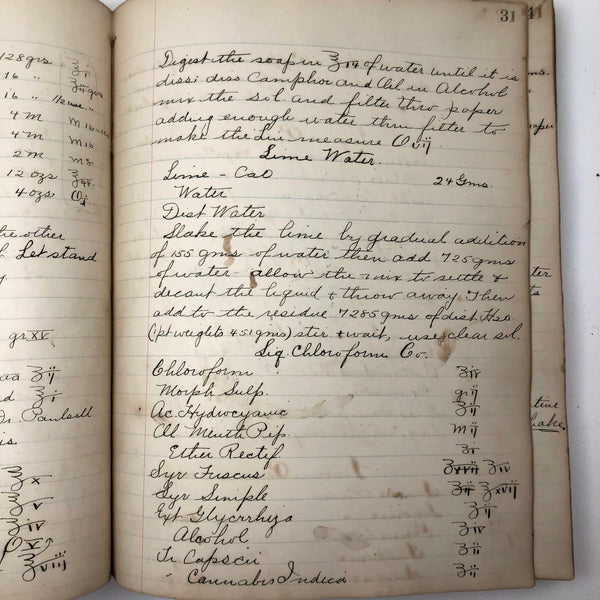 128 grs ʒii
16 "
16 "
4 m m 16
4 m m 16
2 m
12 ozs
4 ozs
the other
Let stand
gr xv
aa ʒij
ʒi
Dr. Paulsell
is
x
v
iv
v
viii
31
41
Digest the soap in ℥14 of water until it is
diss; diss Camphor and Oil in Alcohol
mix the Sol and filter thro paper
adding enough water thru filter to
make the Lin measure O vij
Lime Water.
Lime - CaO 24 Gms.
Water
Dist Water
Slake the lime by gradual addition
of 155 gms of water then add 725 gms
of water allow the mix to settle &
decant the liquid & throw away Then
add to the residue 7285 gms of dist H2O
(1 pt weights 451 gms) stir & wait, use clear sol.
Liq. Chloroform Co.
Chloroform ℥iv
Morph Sulp. gr ij
Ac Hydrocyanic ʒij
Ol Menth Pip. m ij
Ether Rectif ʒi
Syr Fuscus ℥xvij ℥iv
Syr Simple ℥ij ℥xvij
Ext Glycrrhiza ʒij
Alcohol ℥iv
Tr Capscii ʒii
" Cannabis Indica ʒij
ms.
paper
ter
ts
tive
Shake